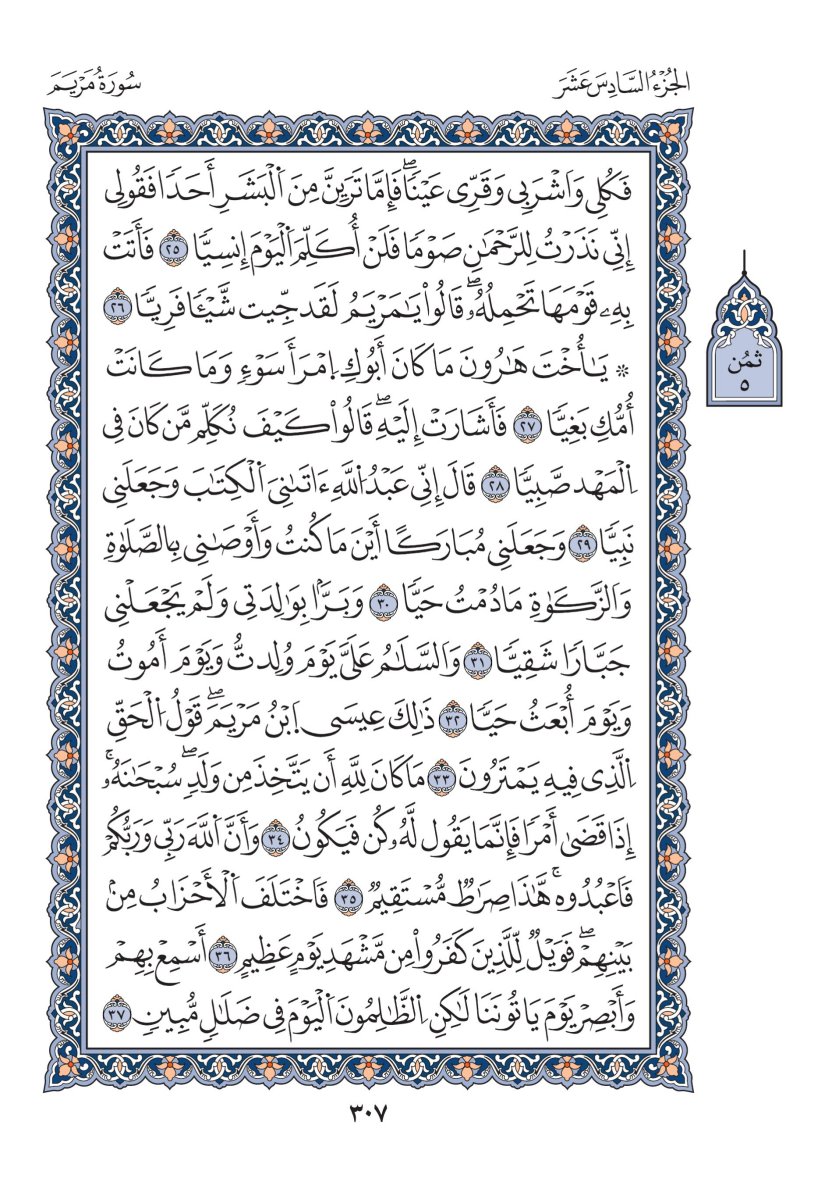 الجُزْءُ السَّادِسَ عَشَرَ
سُورَةُ مَرْيَمَ
فَكُلِي وَاَشْرَبِي وَقَرِّي عَيْنٗاۖ فَإِمَّا تَرَيِنَّ مِنَ اَلْبَشَرِ أَحَدٗا فَقُولِي
إِنِّي نَذَرْتُ لِلرَّحْمَٰنِ صَوْمٗا فَلَنْ أُكَلِّمَ اَلْيَوْمَ إِنسِيّٗا ٢٥ فَأَتَتْ
بِهِۦ قَوْمَهَا تَحْمِلُهُۥۖ قَالُواْ يَٰمَرْيَمُ لَقَد جِّيتِ شَّيْـٔٗا فَرِيّٗا ٢٦
۞ يَٰٓأُخْتَ هَٰرُونَ مَا كَانَ أَبُوكِ اِمْرَأَ سَوْءٖ وَمَا كَانَتْ
أُمُّكِ بَغِيّٗا ٢٧ فَأَشَارَتْ إِلَيْهِۖ قَالُواْ كَيْفَ نُكَلِّم مَّن كَانَ فِي
اِلْمَهْد صَّبِيّٗا ٢٨ قَالَ إِنِّي عَبْدُ اُللَّهِ ءَاتَىٰنِيَ اَلْكِتَٰبَ وَجَعَلَنِي
نَبِيّٗا ٢٩ وَجَعَلَنِي مُبَارَكًا أَيْنَ مَا كُنتُ وَأَوْصَٰنِي بِالصَّلَوٰةِ
وَالزَّكَوٰةِ مَا دُمْتُ حَيّٗا ٣٠ وَبَرَّۢا بِوَٰلِدَتِي وَلَمْ يَجْعَلْنِي
جَبَّارٗا شَقِيّٗا ٣١ وَالسَّلَٰمُ عَلَيَّ يَوْمَ وُلِدتُّ وَيَوْمَ أَمُوتُ
وَيَوْمَ أُبْعَثُ حَيّٗا ٣٢ ذَٰلِكَ عِيسَى اَبْنُ مَرْيَمَۖ قَوْلُ اُلْحَقِّ
اِلَّذِي فِيهِ يَمْتَرُونَ ٣٣ مَا كَانَ لِلَّهِ أَن يَتَّخِذَ مِن وَلَدٖۖ سُبْحَٰنَهُۥٓۚ
إِذَا قَضَىٰ أَمْرٗا فَإِنَّمَا يَقُول لَّهُۥ كُن فَيَكُونُ ٣٤ وَأَنَّ اَللَّهَ رَبِّي وَرَبُّكُمْ
فَاَعْبُدُوهۚ هَّٰذَا صِرَٰطٞ مُّسْتَقِيمٞ ٣٥ فَاَخْتَلَفَ اَلْأَحْزَابُ مِنۢ
بَيْنِهِمْۖ فَوَيْلٞ لِّلَّذِينَ كَفَرُواْ مِن مَّشْهَدِ يَوْمٍ عَظِيمٍ ٣٦ أَسْمِعْ بِهِمْ
وَأَبْصِرْ يَوْمَ يَاتُونَنَا لَٰكِنِ اِلظَّٰلِمُونَ اَلْيَوْمَ فِي ضَلَٰلٖ مُّبِينٖ ٣٧
ثمُن
٥
٣٠٧